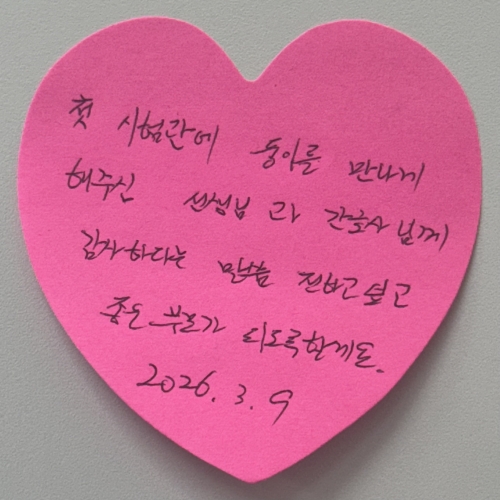 첫 시험관에 둥이를 만나게
해주신 선생님과 간호사님께
감사하다는 말씀 전하고 싶고
좋은 부모가 되도록할게요.
2026. 3. 9